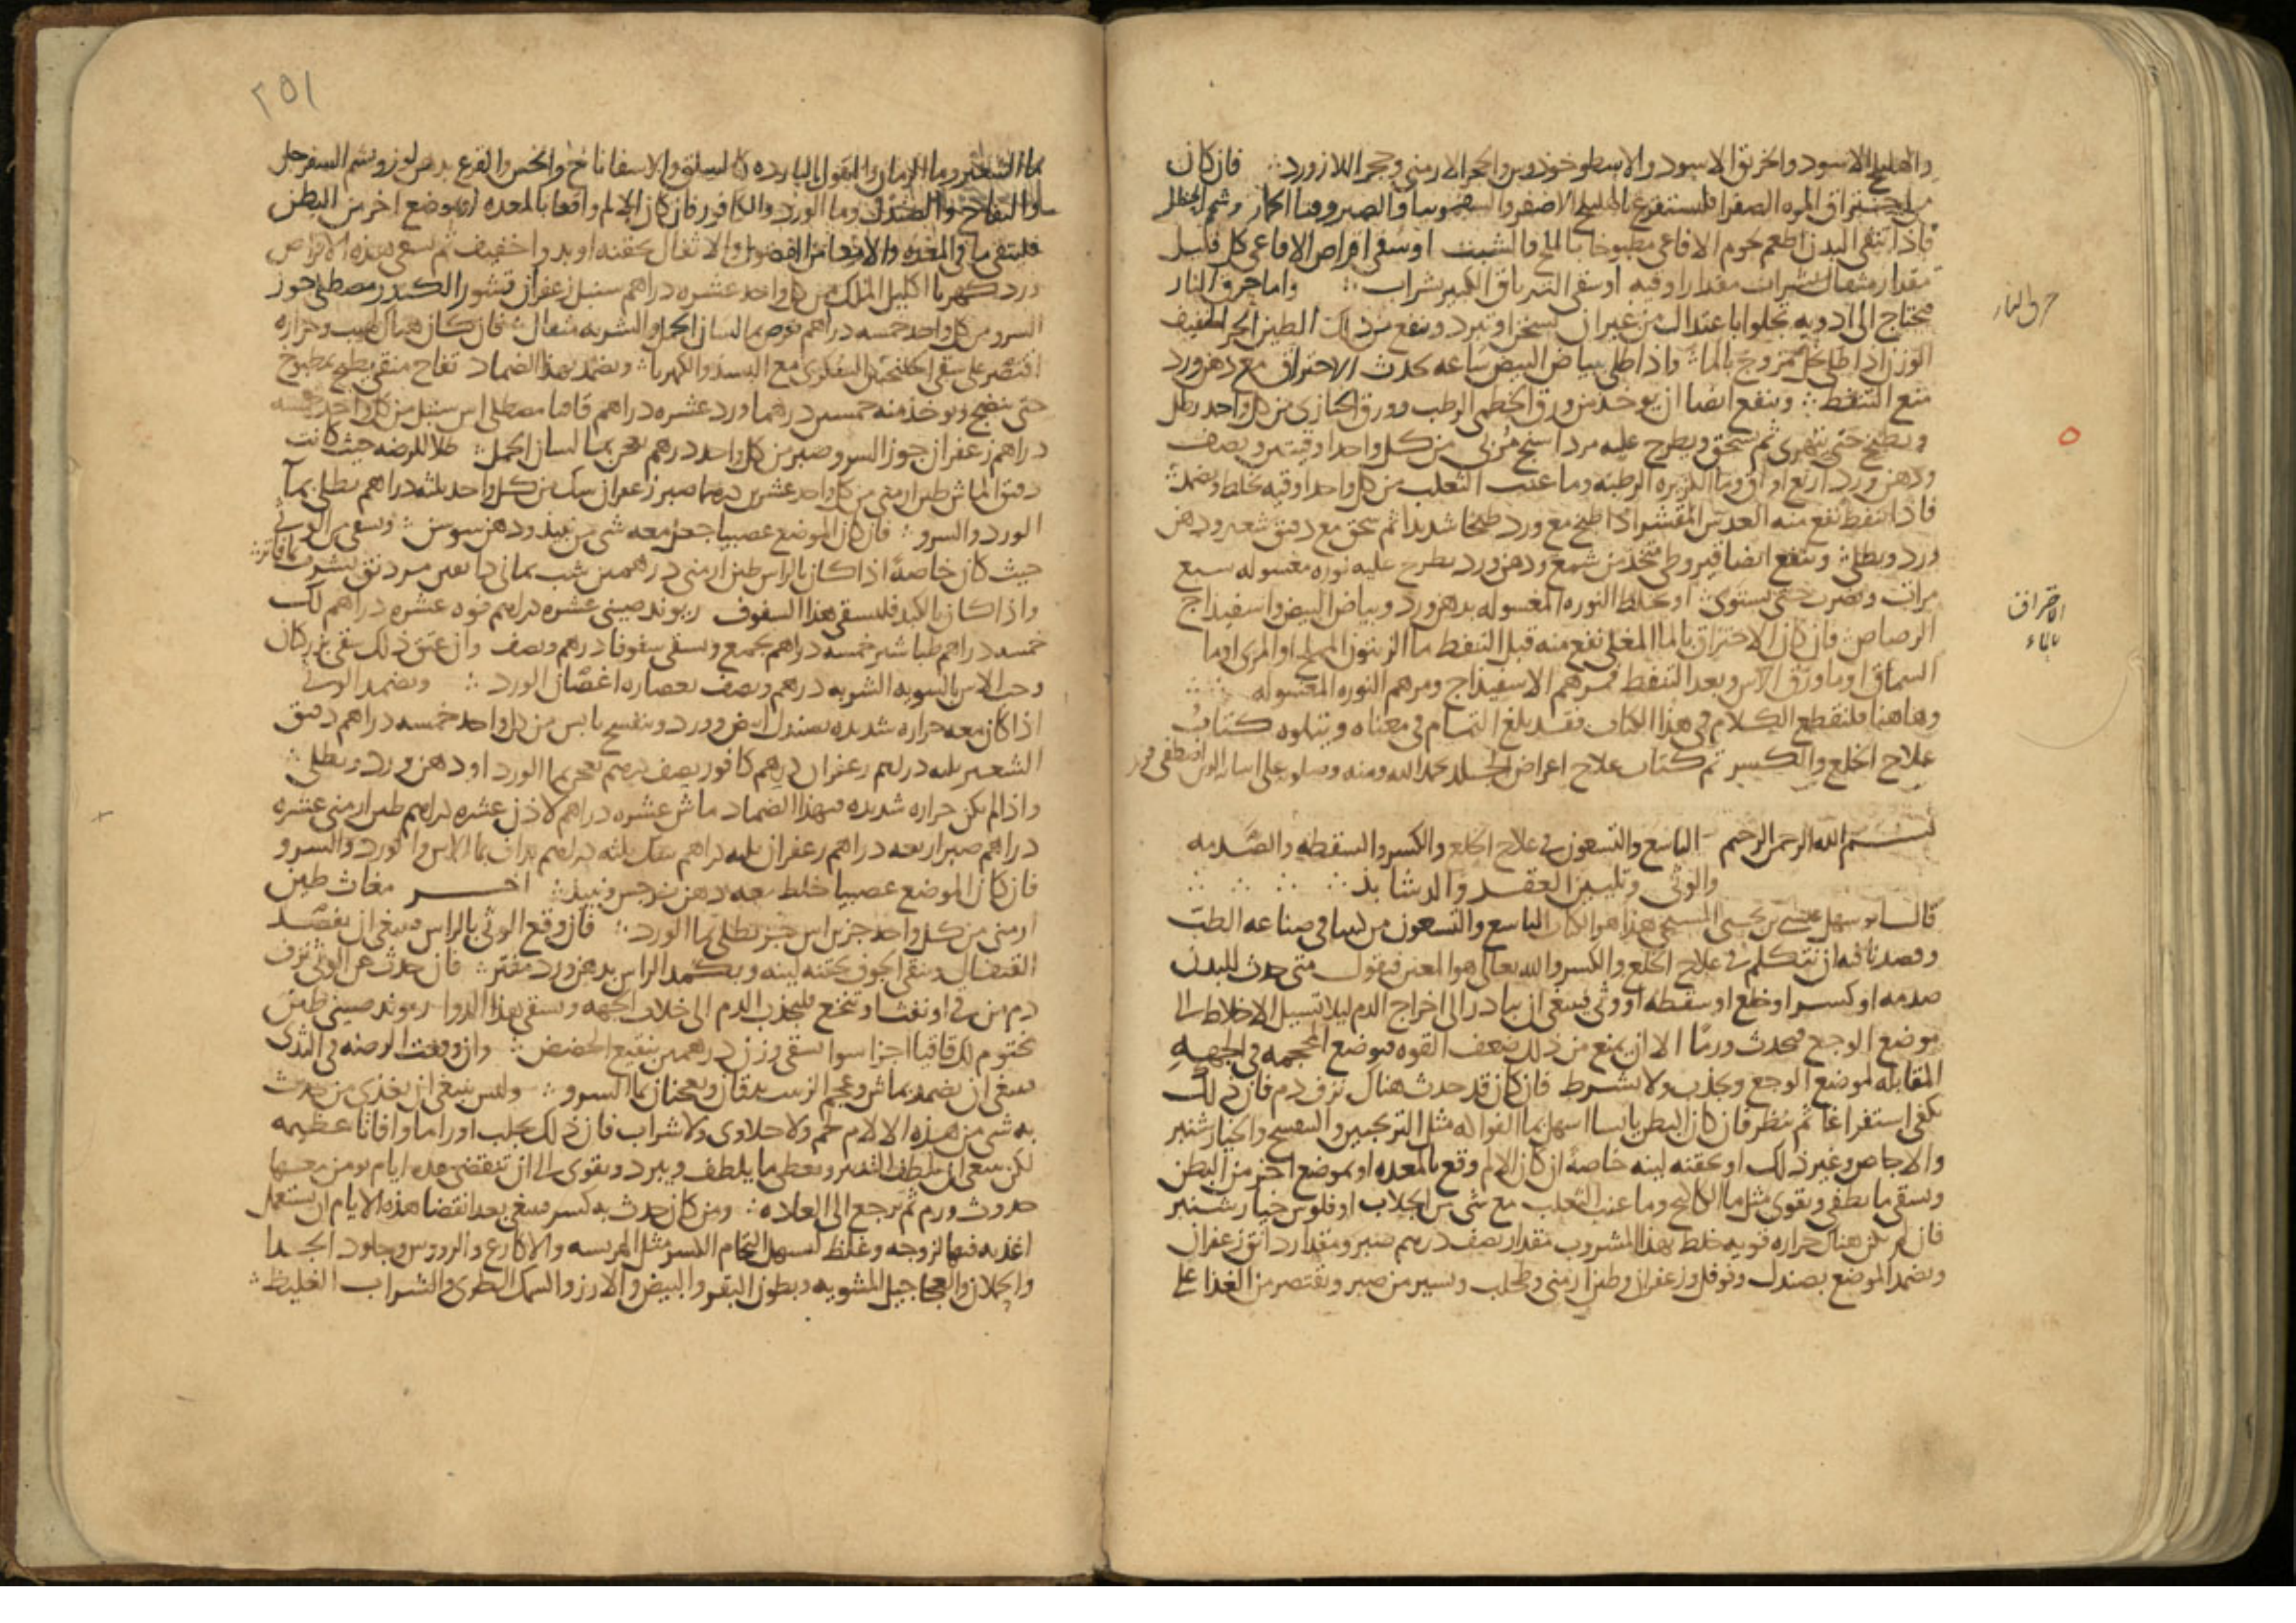 والهليلج الاسود والخربق الاسود والاسطوخوذوس والحجر الارمني وحجر اللازورد فان كان
من احتراق المره الصفرا فليستفرغ بالهليلج الاصفر والسقمونيا والصبر وقثا الحمار وشحم الحنظل
فاذا تنقى البدن اطعم لحوم الافاعي مطبوخا بالملح والشبت او سقي اقراص الافاعي كل قليل
مقدار مثقال بشراب مقدار اوقيه او سقي الترياق الكبير بشراب واما حرق النار
حرق النار
فيحتاج الى ادويه تجلوا باعتدال من غير ان تسخن او تبرد وينفع من ذلك الطين الحر الخفيف
الوزن اذا طلي بخل ممزوج بالما واذا طلي بياض البيض ساعه يحدث الاحتراق مع دهن ورد
منع التنفط وينفع ايضا ان يوخذ من ورق الخطمي الرطب وورق الخبازى من كل واحد رطل
ويطبخ حتى يتهرى ثم يسحق ويطرح عليه مرداسنج مربى من كل واحد اوقيتين ونصف
ودهن ورد اربع اواق وما الكزبره الرطبه وما عنب الثعلب من كل واحد اوقيه يخلط ويضمد
فاذا تنفط نفع منه العدس المقشر اذا طبخ مع ورد طبخا شديدا ثم سحق مع دقيق شعير ودهن
ورد ويطلى وينفع ايضا قيروطي متخذ من شمع ودهن ورد يطرح عليه نوره مغسوله سبع
مرات ويضرب حتى يستوى او يخلط النوره المغسوله بدهن ورد وبياض البيض واسفيداج
الاحتراق
بالماء
الرصاص فان كان الاحتراق بالما المغلي نفع منه قبل التنفط ما الزيتون المملح او المرى او ما
السماق او ما ورق الاس وبعد التنفط مرهم الاسفيذاج ومرهم النوره المغسوله
وهاهنا فلنقطع الكلام في هذا الكتاب فقد بلغ التمام في معناه ويتلوه كتاب
علاج الخلع والكسر تم كتاب علاج اعراض الجلد بحمد الله ومنه
بسم الله الرحمن الرحيم التاسع والتسعون في علاج الخلع والكسر والسقطه والصدمه
والوثى وتليين العقد والدشابذ
قال ابو سهل عيسى بن يحيى المسيحي هذا هو الكتاب التاسع والتسعون من كتبنا في صناعه الطب
وقصدنا فيه ان نتكلم في علاج الخلع والكسر والله تعالى هو المعين فنقول متى حدث للبدن
صدمه او كسر او خلع او سقطه او وثى فينبغي ان يبادر الى اخراج الدم ليلا تسيل الاخلاط الى
موضع الوجع فيحدث ورما الا ان يمنع من ذلك ضعف القوه فيوضع المحجمه في الجهه
المقابله لموضع الوجع ويجذب ولا يشرط فان كان قد حدث هناك نزف دم فان ذلك
يكفي استفراغا ثم ينظر فان كان البطن يابسا اسهل بما الفواكه مثل الترنجبين والبنفسج والخيارشنبر
والاجاص وغير ذلك او بحقنه لينه خاصة ان كان الالم وقع بالمعده او بموضع اخر من البطن
ويسقى ما يطفي ويقوى مثل ما الكاكنج وما عنب الثعلب مع شي من الجلاب او فلوس خيارشنبر
فان لم يكن هناك حراره قويه خلط بهذا المشروب مقدار نصف درهم صبر ومقدار دانق زعفران
ويضمد الموضع بصندل وفوفل وزعفران وطين ارمني وطحلب ويسير من صبر ويقتصر من الغذا على
٢٥١
ما الشعير وما الرمان والبقول البارده كالسلق والاسفاناخ والخس والقرع بدهن لوز ويشم السفرجل
والتفاح والصندل وما الورد والكافور فان كان الالم واقعا بالمعده او بموضع اخر من البطن
فلينقى ما في المعده والامعا من الفضول والاثفال بحقنه او بدوا خفيف ثم يسقى هذه الاقراص
ورد كهربا اكليل الملك من كل واحد عشره دراهم سنبل زعفران قشور الكندر مصطكي جوز
السرو من كل واحد خمسه دراهم يقرص بما لسان الحمل والشربه مثقال فان كان هناك لهيب وحراره
اقتصر على سقي السكنجبين السفرجلي مع البسذ والكهربا ويضمد بهذا الضماد تفاح منقى يطبخ بمطبوخ
حتى ينضج ويوخذ منه خمسين درهما ورد عشره دراهم قاقيا مصطكي اس سنبل من كل واحد خمسه
دراهم زعفران جوز السرو صبر من كل واحد درهم يعجن بما لسان الحمل طلا للرضه حيث كانت
دقيق الماش طين ارمني من كل واحد عشرين درهما صبر زعفران سك من كل واحد ثلثه دراهم يطلى بما
الورد والسرو فان كان الموضع عصبيا جعل معه شي من نبيذ ودهن سوسن
حيث كان خاصة اذا كان بالراس طين ارمني درهمين شب يماني دانقين
واذا كان بالكبد فليسقى هذا السفوف ريوند صيني عشره دراهم فوه عشره دراهم لك
خمسه دراهم طباشير خمسه دراهم يجمع ويسقى سفوفا درهم ونصف وان عتق ذلك سقي بزر كتان
وحب الاس بالسويه الشربه درهم ونصف بعصاره اغصان الورد ويضمد الوثى
اذا كان معه حراره شديده بصندل ابيض وورد وبنفسج يابس من كل واحد خمسه دراهم دقيق
الشعير ثلثه دراهم زعفران درهم كافور نصف درهم يعجن بما الورد او دهن ورد ويطلى
واذا لم يكن حراره شديده فبهذا الضماد ماش عشره دراهم لاذن عشره دراهم طين ارمني عشره
دراهم صبر اربعه دراهم زعفران ثلثه دراهم سك ثلثه دراهم يداف بما الاس والورد والسرو
فان كان الموضع عصبيا خلط معه دهن نرجس ونبيذ اخر مغاث طين
ارمني من كل واحد جز يطلى بما الورد فان وقع الوثى بالراس فينبغي ان يفصد
القيفال وينقى الجوف بحقنه لينه ويضمد الراس بدهن ورد مفتر فان حدث عن الوثى نزف
دم من في او نفث او تنخع فليجذب الدم الى خلاف الجهه ويسقى هذا الدوا ريوند صيني طين
مختوم لك قاقيا اجزا سوا يسقى وزن درهمين بنقيع الحضض وان وقعت الرضه في الثدى
فينبغي ان يضمد بماش وعجم الزبيب يدقان ويعجنان بما السرو وليس ينبغي ان يغذى من حدث
به شي من هذه الالام لحم ولا حلاوى ولا شراب فان ذلك يجلب اوراما وافاتا عظيمه
لكن ينبغي ان يلطف التدبير ويعطى ما يلطف ويبرد ويقوى الى ان تنقضي عده ايام يومن معها
حدوث ورم ثم يرجع الى العاده ومن كان حدث به كسر فينبغي بعد انقضا هذه الايام ان يستعمل
اغذيه فيها لزوجه وغلظ ليسهل التحام الكسر مثل الهريسه والاكارع والرووس وجلود الجدا
والحملان والعجاجيل المشويه وبطون البقر والبيض والارز والسمك الطرى والشراب الغليظ